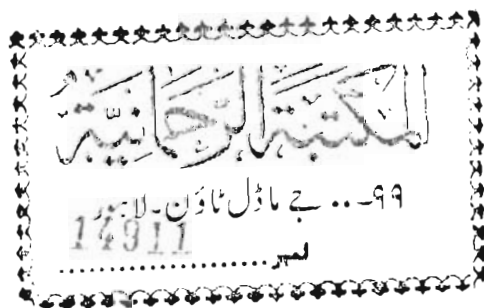 المكتبة الرحمانية
۹۹۔۔۔ جے ماڈل ٹاؤن۔ لاہور
14911
نمبر....................